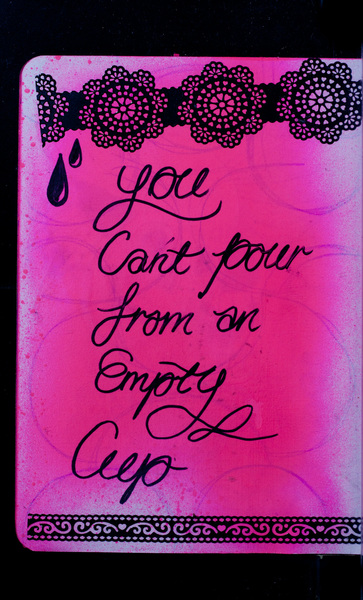 you
Can't pour
from an
Empty
Cup